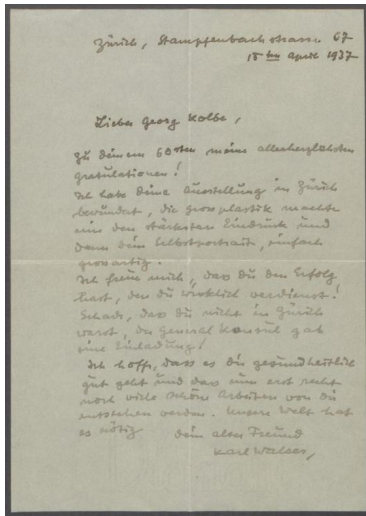 Zürich, Stampfenbachstrasse 67
15ten April 1937
Lieber Georg Kolbe,
Zu deinem 60sten meine allerherzlichsten
Gratulationen!
Ich habe deine Ausstellung in Zürich
bewundert, die grossplastik machte
mir den stärksten Eindruck und
dann dein Selbstportrait, einfach
grossartig.
Ich freue mich, dass du den Erfolg
hast, den du wirklich verdienst!
Schade, dass du nicht in Zürich
warst, der General Konsul gab
eine Einladung!
Ich hoffe, dass es dir gesundheitlich
gut geht und dass nun erst recht
noch viele schöne Arbeiten von dir
entstehen werden. Unsere Welt hat
es nötig
dein alter Freund
Karl Walser,